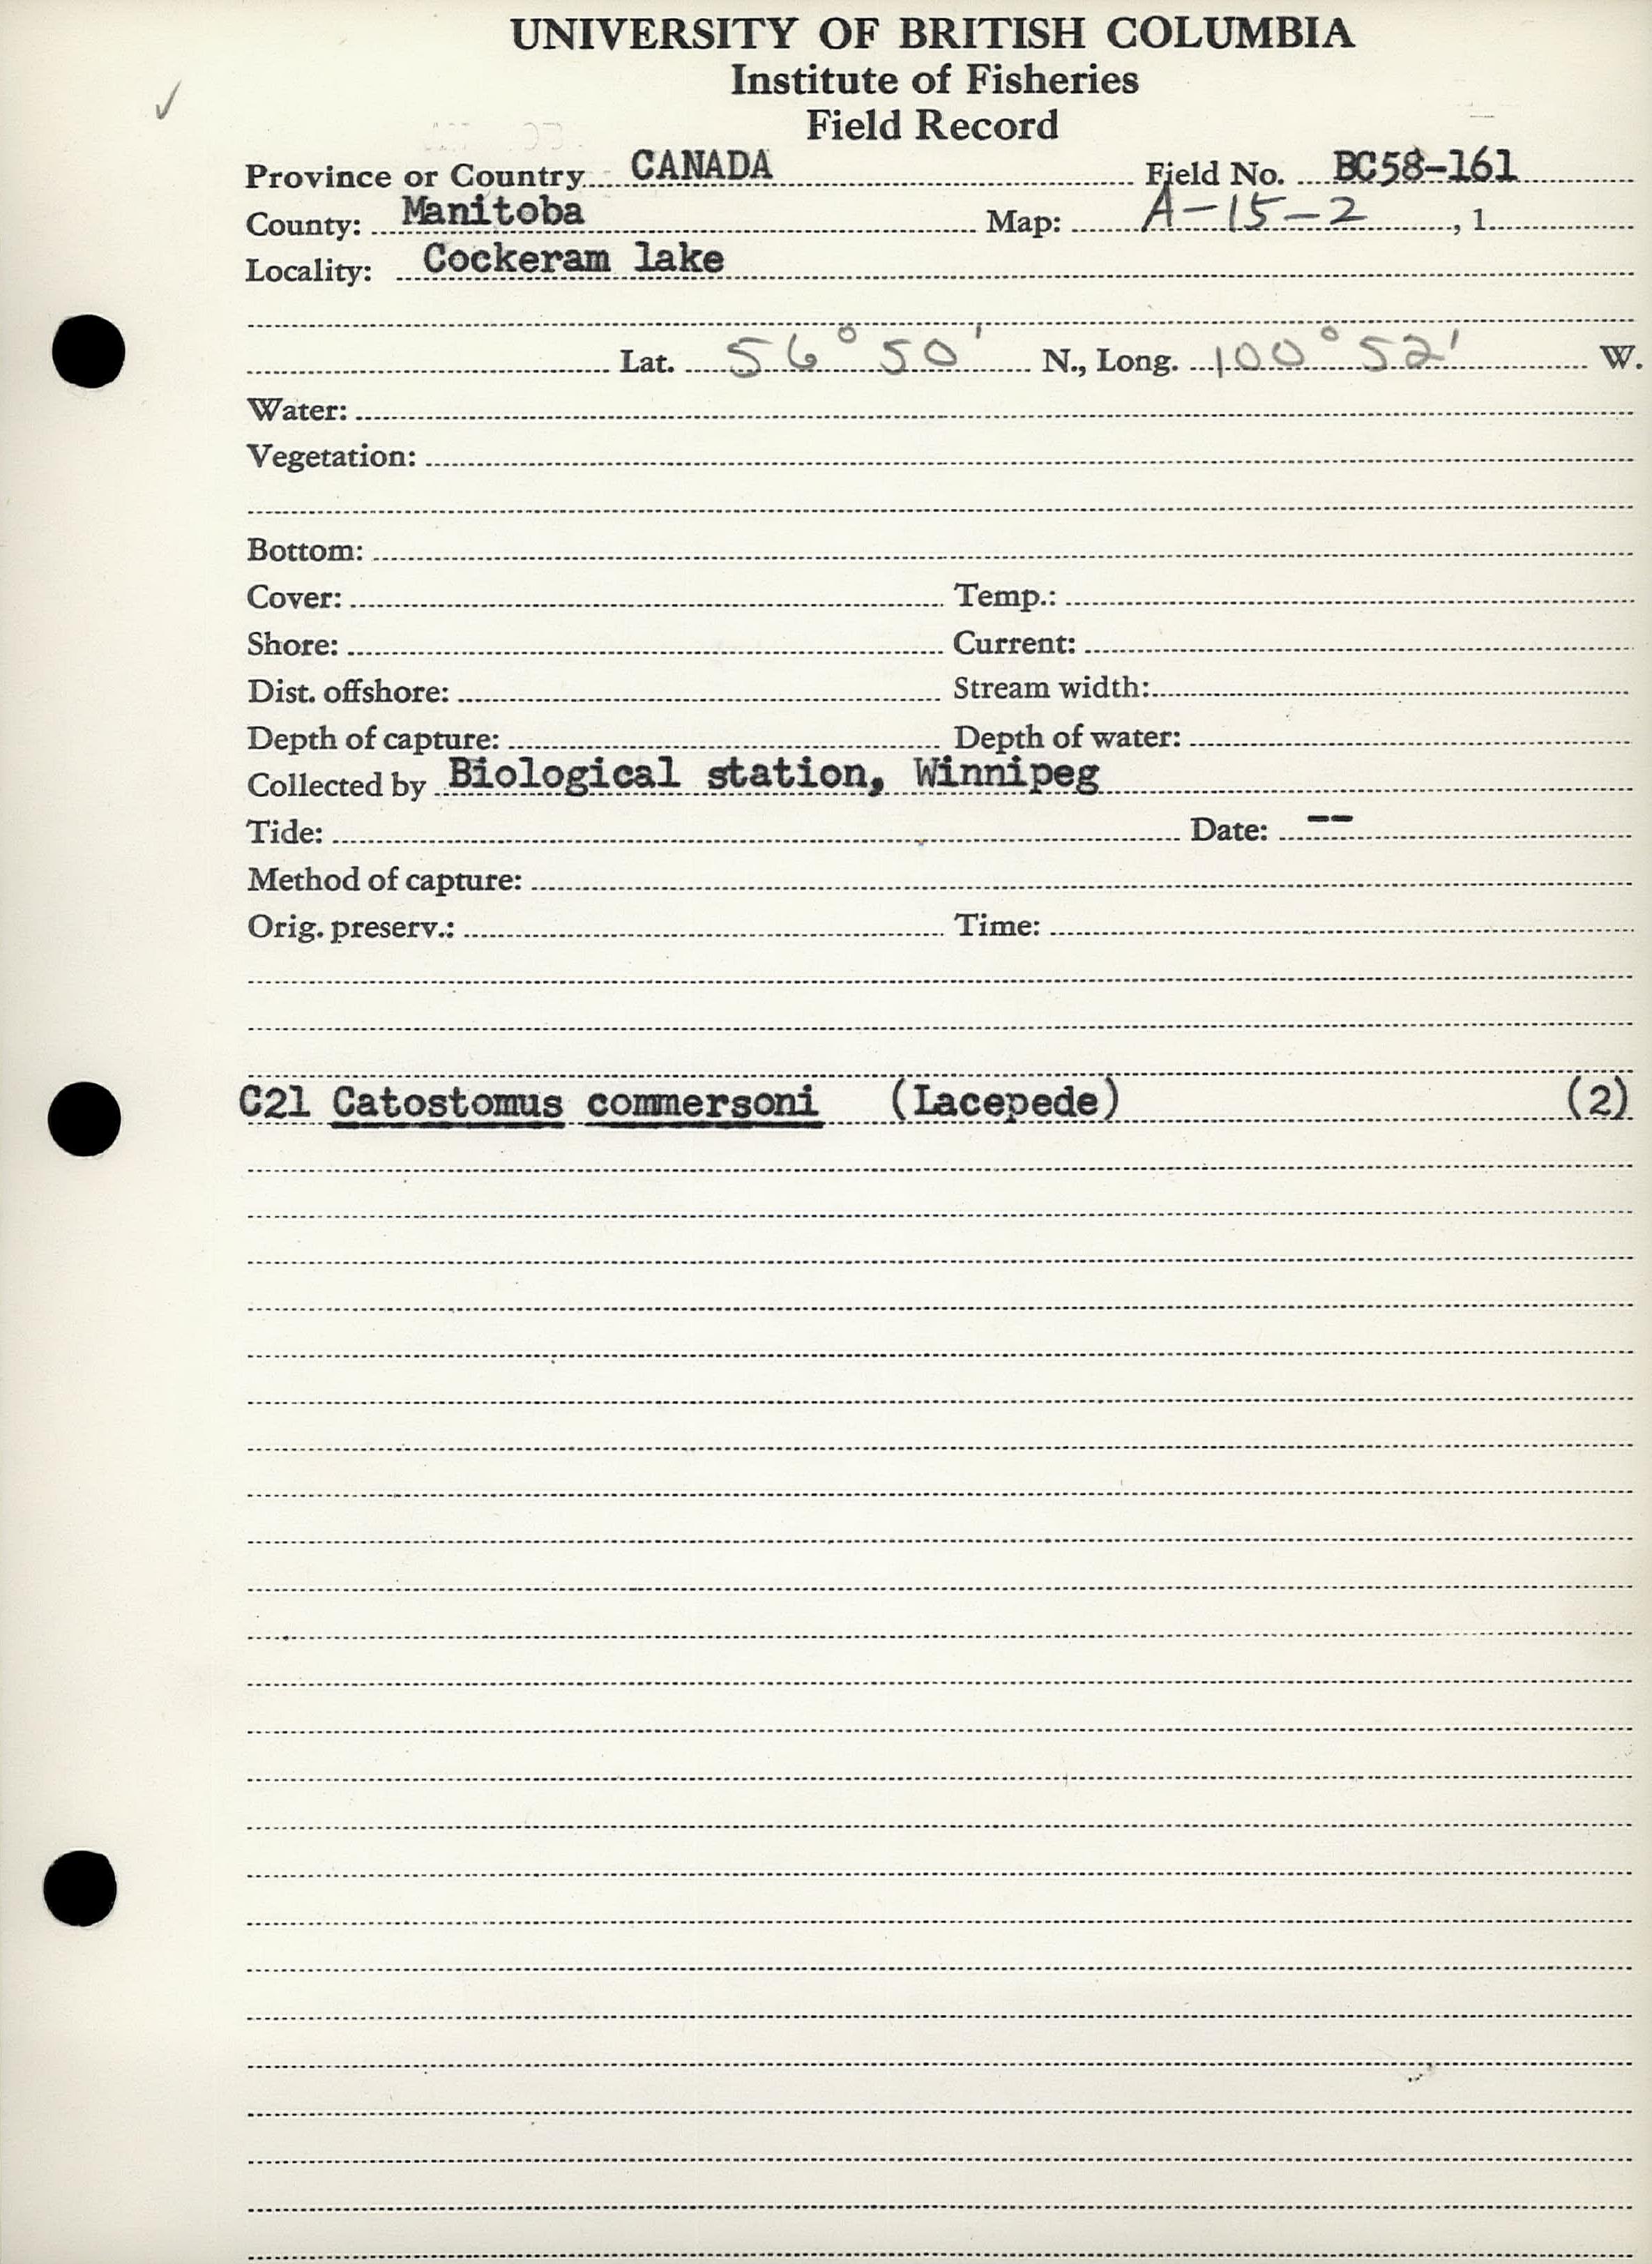 UNIVERSITY OF BRITISH COLUMBIA
Institute of Fisheries
Field Record
Province or Country CANADA Field No. BC58-161
County: Manitoba Map: A-15-2, 1
Locality: Cockeram lake
Lat. 56° 50' N., Long. 100° 52' W.
Water:
Vegetation:
Bottom:
Cover: Temp.:
Shore: Current:
Dist. offshore: Stream width:
Depth of capture: Depth of water:
Collected by Biological station, Winnipeg
Tide: Date: --
Method of capture:
Orig. preserv.: Time:
C21 Catostomus commersoni (Lacepede) (2)